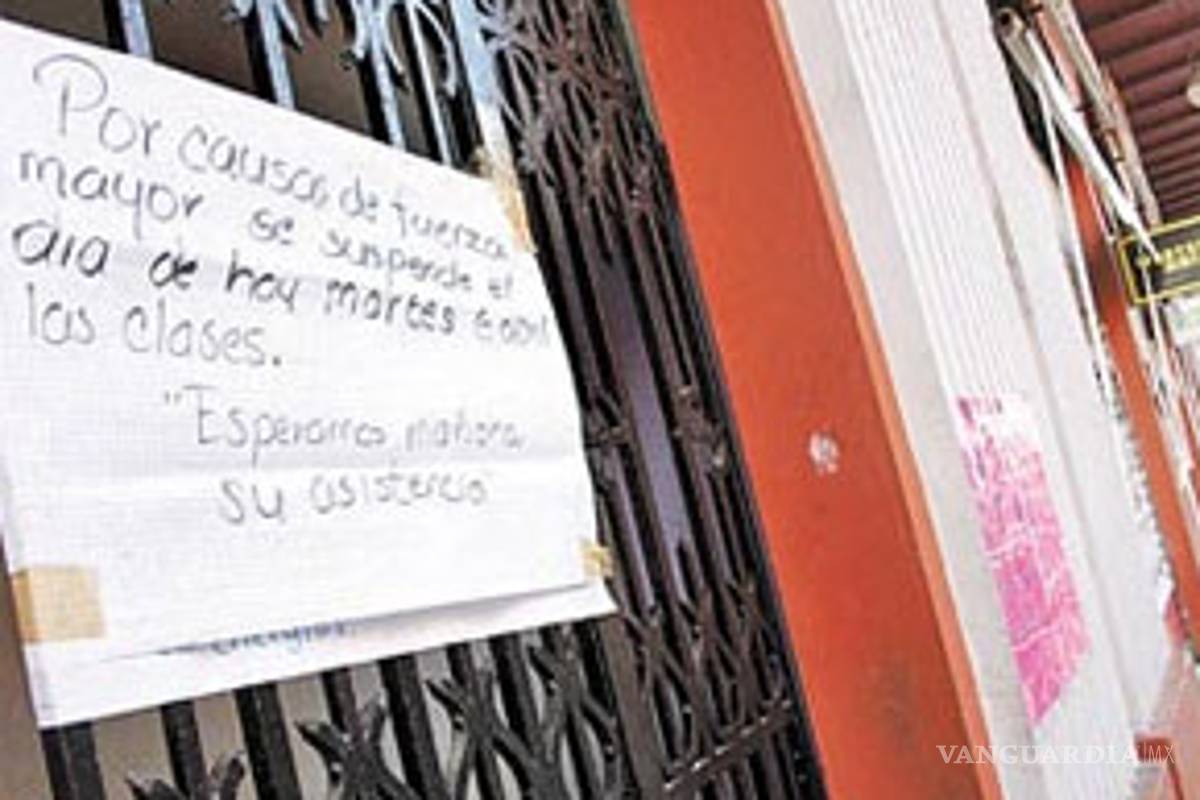 Por causa de fuerza
mayor se suspende el
dia de hoy martes 6 abril
las clases.
"Esperamos mañana
su asistencia"
VANGUARDIA|MX